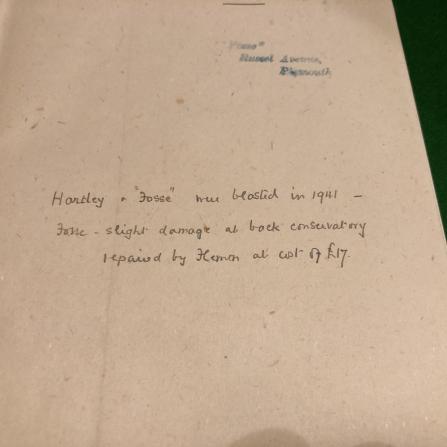 "Fosse"
Russel Avenue,
Plymouth
Hartley & "Fosse" were blasted in 1941 –
Fosse - slight damage at back conservatory
repaired by Hemon at cost of £17.